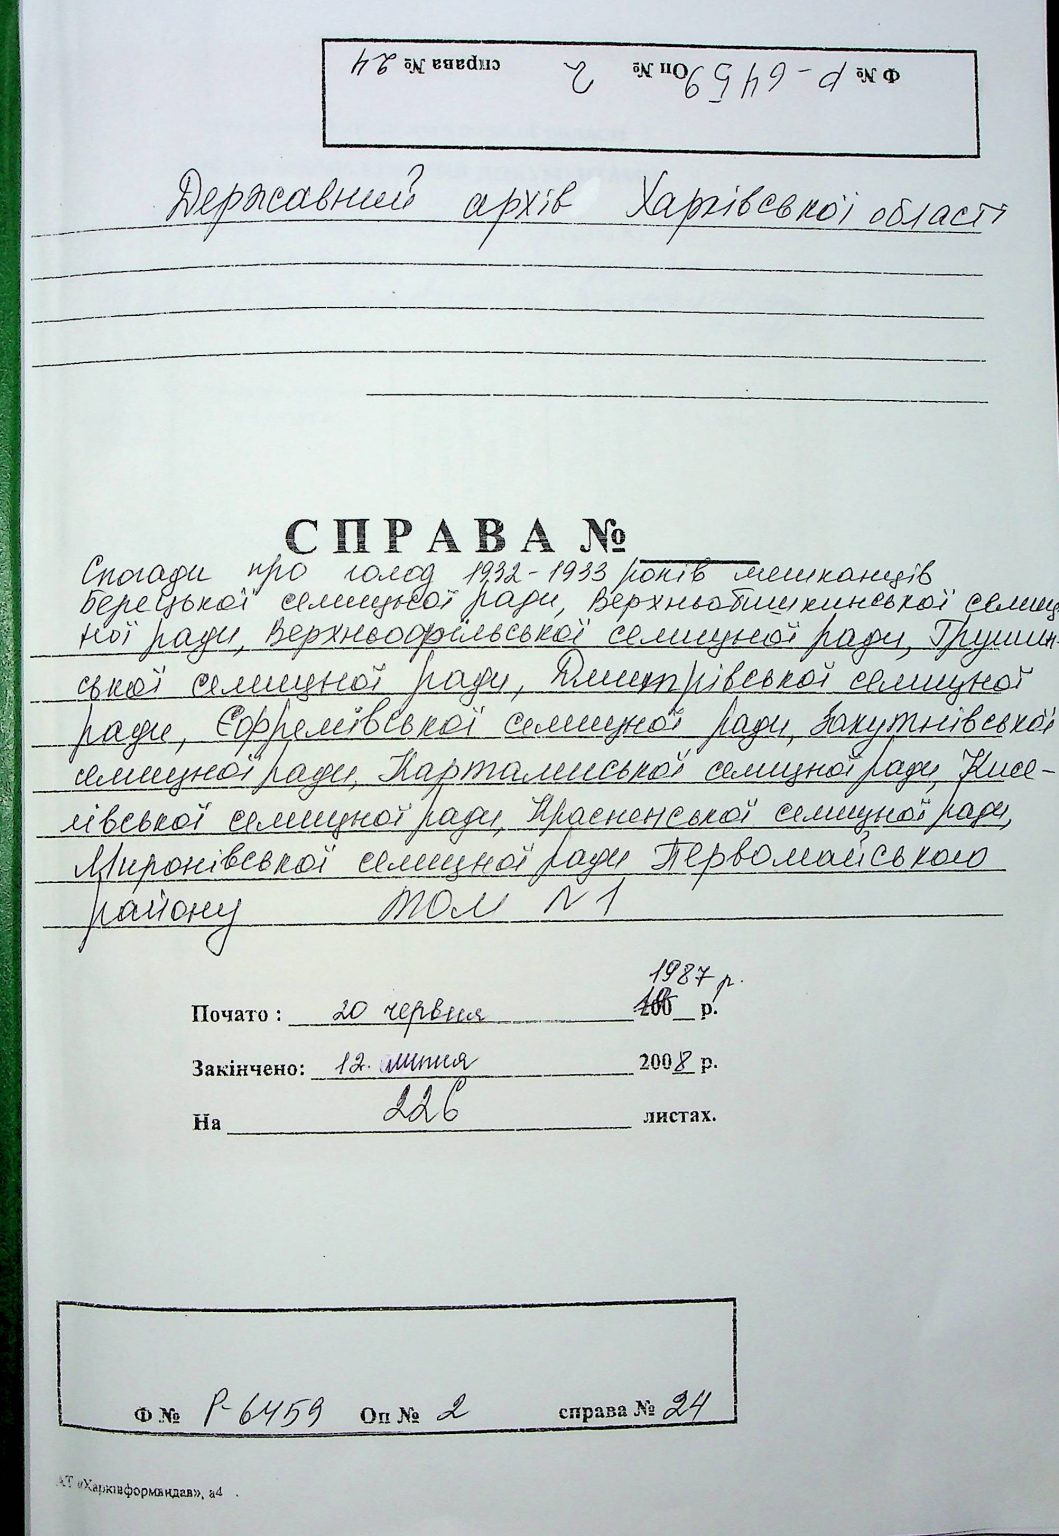 Ф № Р-6459 Оп № 2 справа № 24
Державний архів Харківської області
СПРАВА №
Спогади про голод 1932-1933 років мешканців
Берецької селищної ради, Верхньобишкинської селищ
ної ради, Верхньоорільської селищної ради, Грушин-
ської селищної ради, Дмитрівської селищної
ради, Єфремівської селищної ради, Закутнівської
селищної ради, Картамиської селищної ради, Кисе-
лівської селищної ради, Красненської селищної ради,
Миронівської селищної ради Первомайського
району том №1
1987 р.
Почато : 20 червня р.
Закінчено: 12. липня 2008 р.
На 226 листах.
Ф № Р-6459 Оп № 2 справа № 24
АТ «Харківформвидав», а4